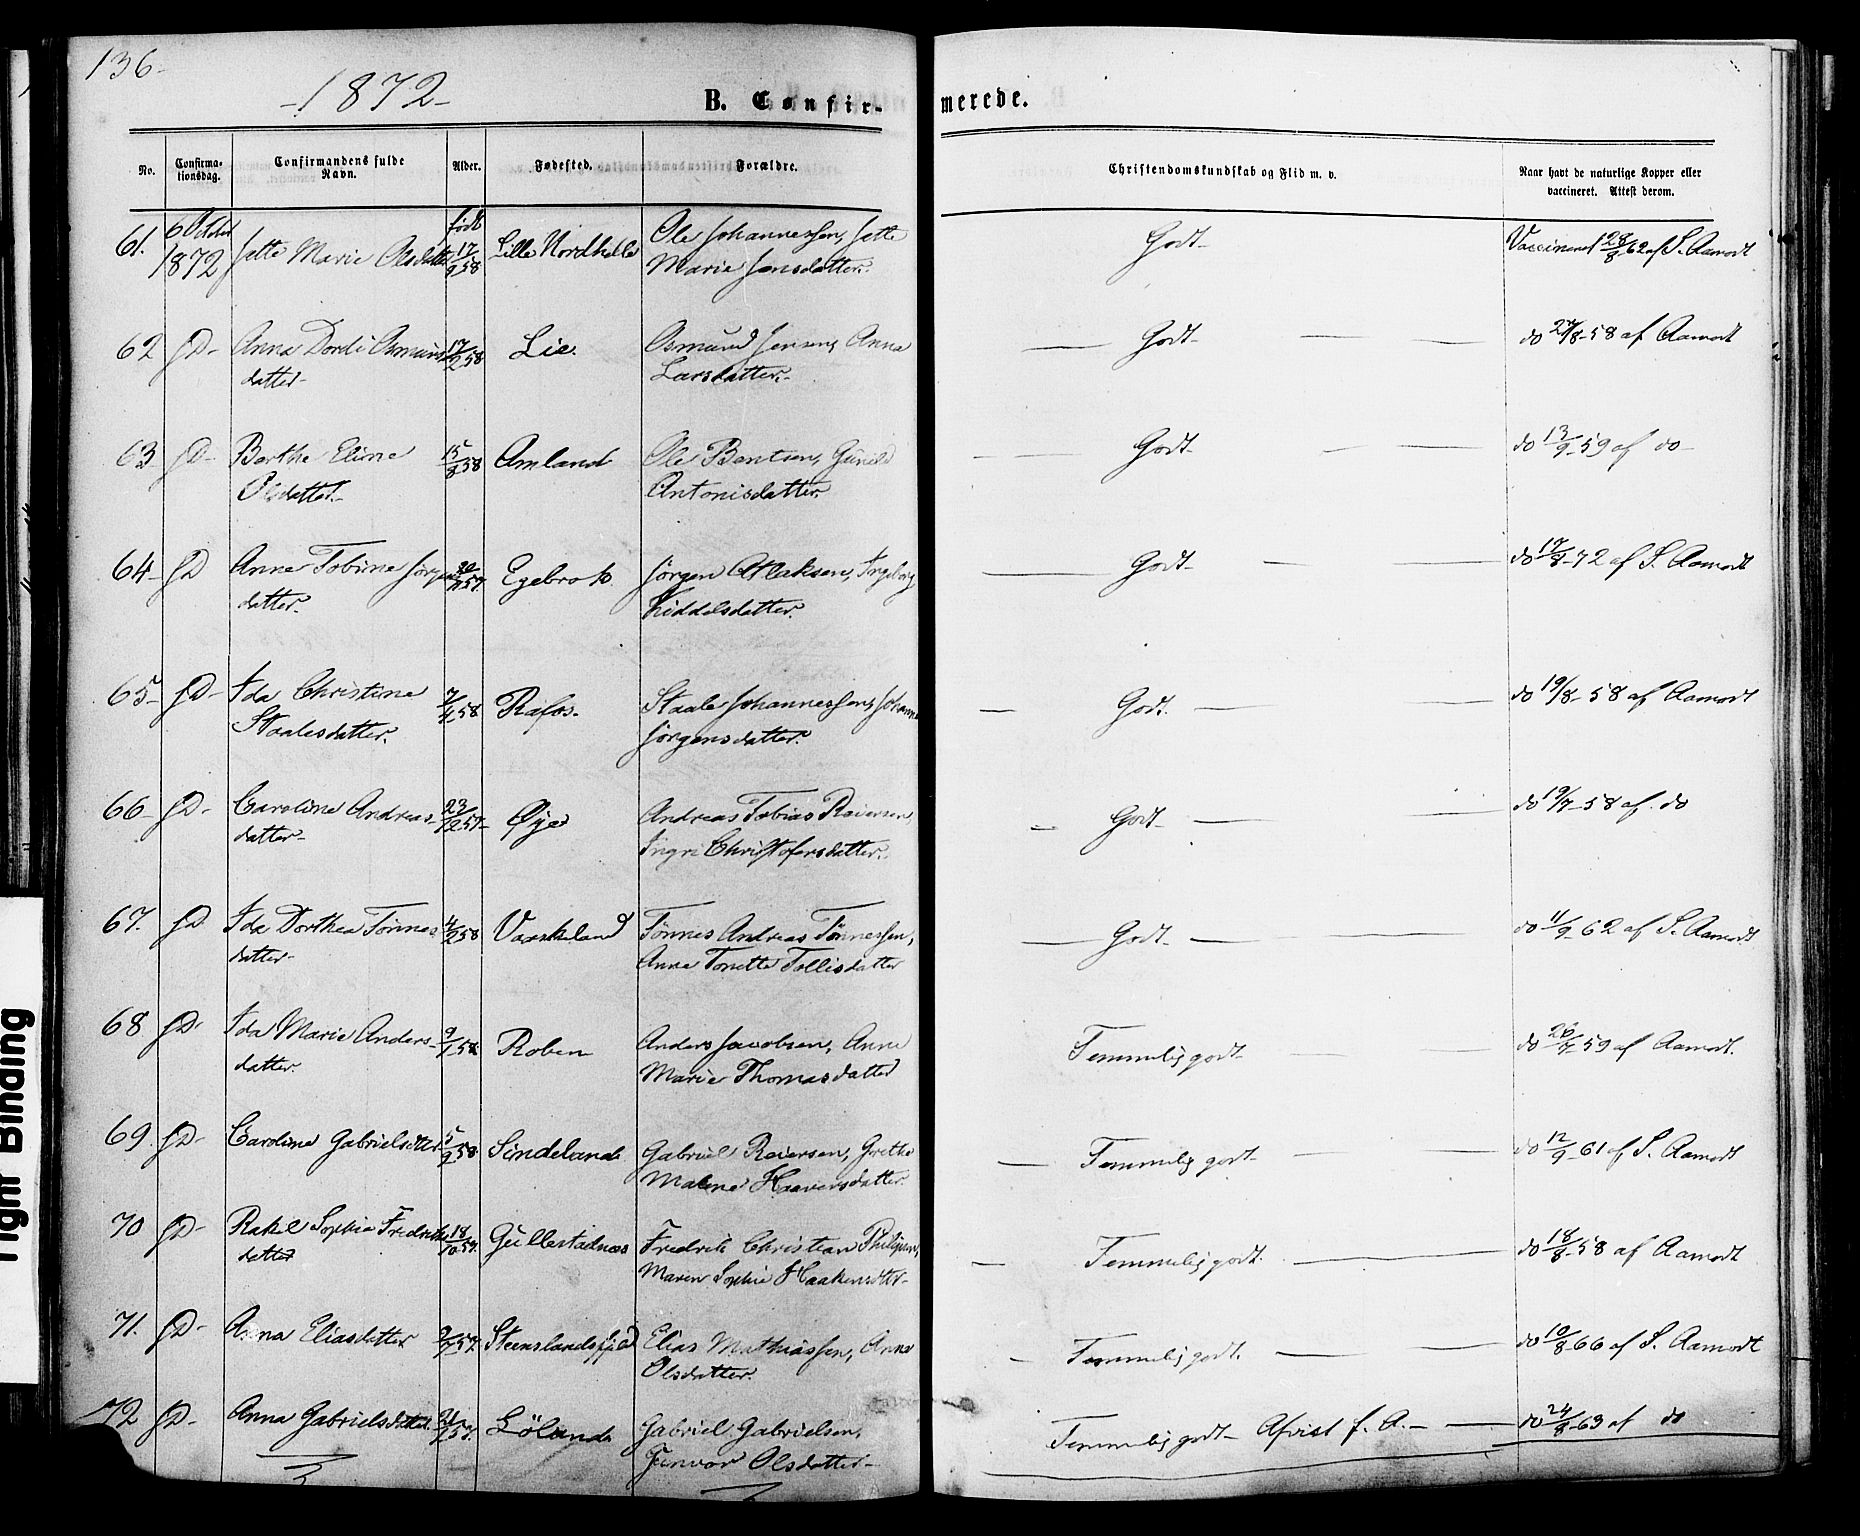 136-
-1872-
B. Confir-
merede.
No.
Confirma-
tionsdag.
Confirmandens fulde
Navn.
Alder.
Fødested.
Forældre.
Christendomskundskab og Flid m. v.
Naar havt de naturlige Kopper eller
vaccineret. Attest derom.
61. 6 October 1872 Jette Marie Olsdatter født 17/9 58 Lille Nordhelle Ole Johannessen, Jette
Marie Jensdatter. Godt- Vaccineret 28/8 62 af S. Aamodt
62 JD- Anna Dordi Osmunds 17/2 58 Lie. Osmund Jensen, Anna
datter- Larsdatter.- — Godt- — — do 27/8-58 af Aamodt
63 JD- Berthe Eline 15/8 58 Amland Ole Bentsen, Gunild
Olsdatter.- Antonisdatter. — Godt- — — do 13/9-59 af do-
64- JD Anne Tobine Jørgens 57. Egebrok Jørgen Atlaksen, Ingeborg
datter.- Kiddelsdatter. — Godt- — — do 17/8-72 af S. Aamodt
65- JD- Ida Christine 7/4 58 Rafos- Staale Johannessen, Johanne
Staalesdatter. Jørgensdatter. — Godt. — — do 19/8-58 af Aamodt
66- JD- Caroline Andreas- 23/12 57- Øye Andreas Tobias Reiersen,
datter- Ingri Christofersdatter. — Godt- — — do 19/7-58 af. do
67. JD Ida Dorthea Tønnes 4/2 58 Vaskeland Tønnes Andreas Tønnessen,
datter- Anne Tonette Tollisdatter — Godt- — — do 11/9-62 af S. Aamodt
68 JD- Ida Marie Anders- 9/1 58 Roben Anders Jacobsen, Anne
datter. Marie Thomasdatter Temmelig godt- — — do 26/7-59 af Aamodt.
69. JD- Caroline Gabrielsdtter 5/2 58 Sindeland Gabriel Reiersen, Grethe
Malene Haaversdatter. — Temmelig godt- — — do 12/9-61 af S. Aamodt
70 JD- Rakel Sophie Fredriks 18/10 57. Gullestadnæs Fredrik Christian Philipsen,
datter Maren Sophie Haakensdtter- — Temmelig godt. — do 18/8-58 af Aamodt
71. JD- Anna Eliasdatter 9/7 57. Steenslandsfjeld Elias Mathiassen, Anne
Olsdatter. — Temmelig godt. — — do 10/8-66 af S. Aamodt
72 JD- Anna Gabrielsdatter 57. Løland Gabriel Gabrielsen,
Gunvor Olsdatter- Temmelig godt- Afvist f. A.- — do 24/8-63 af do
Tight Binding